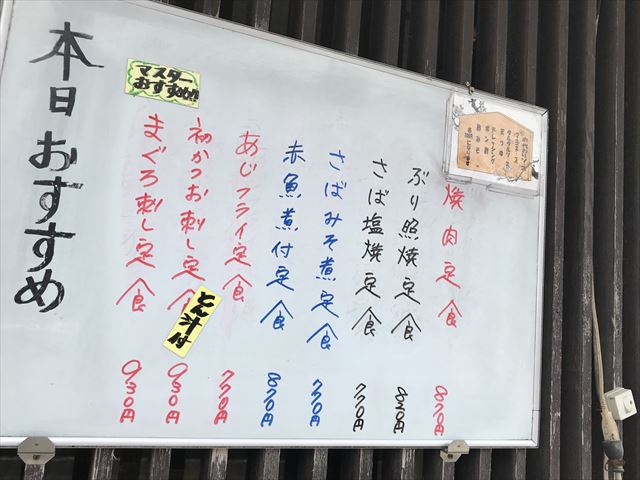 本日おすすめ
焼肉定食 870円
ぶり照焼定食 820円
さば塩焼定食 770円
さばみそ煮定食 770円
赤魚煮付定食 870円
あじフライ定食 770円
初かつお刺し定食 930円
とん汁付
マスター
おすすめ!!
まぐろ刺し定食 930円